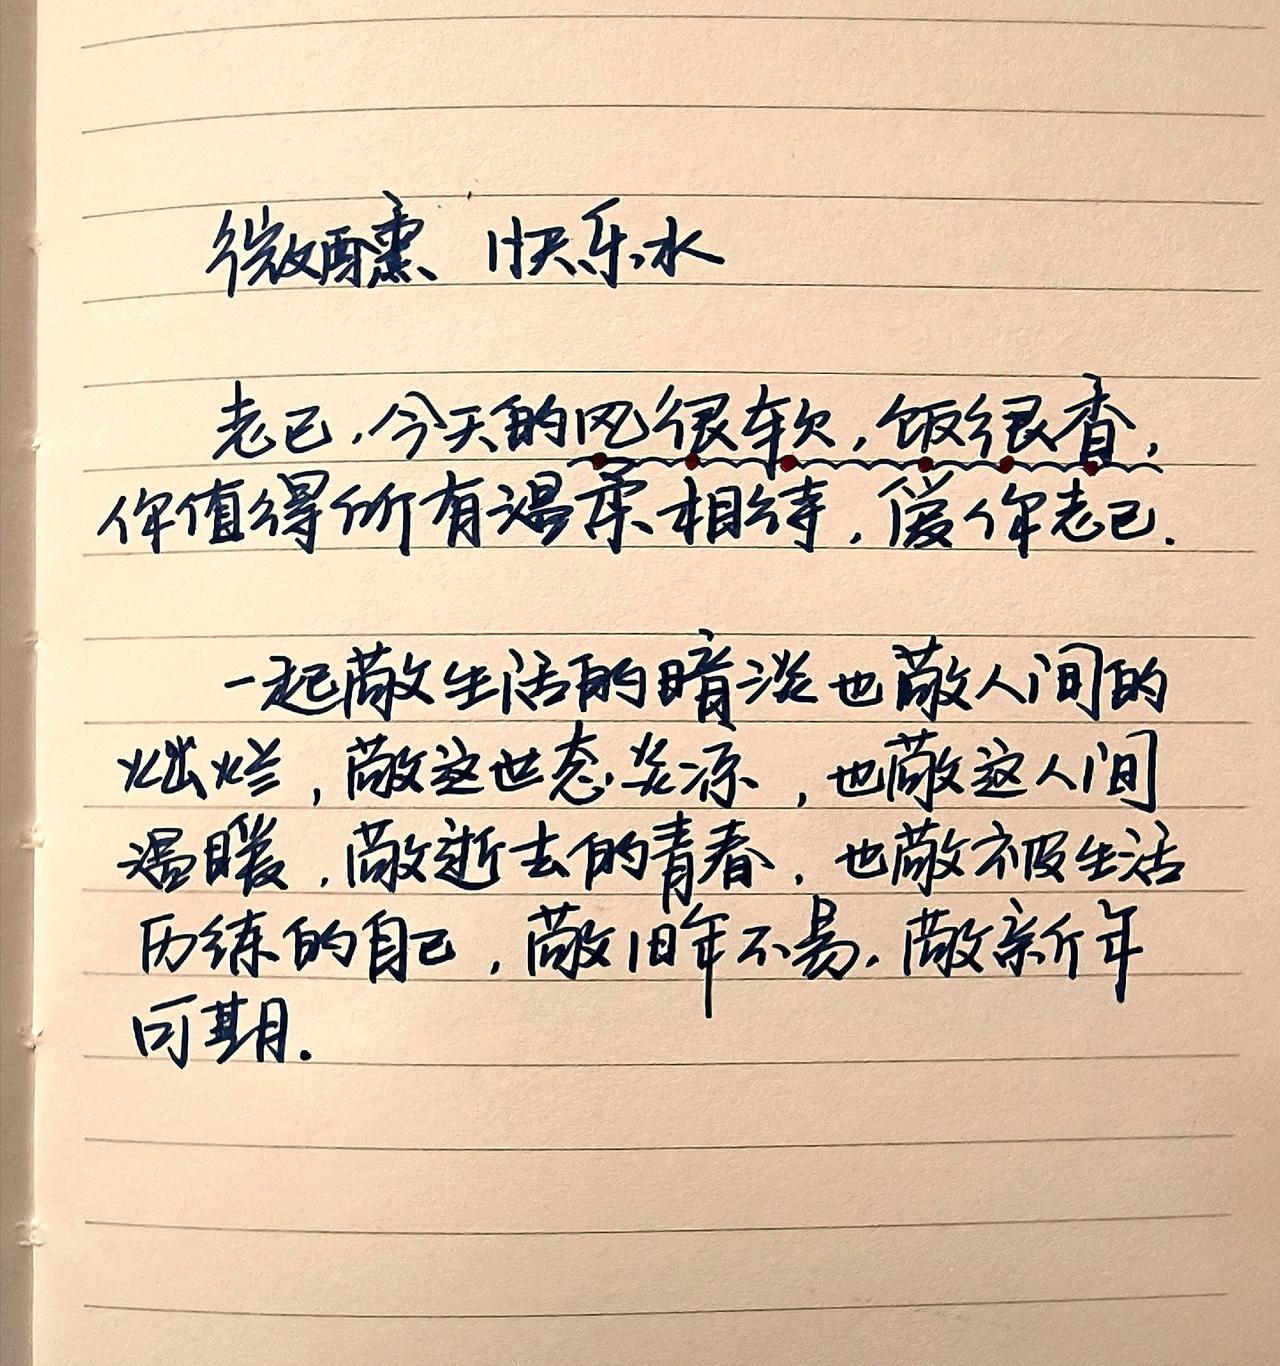 微醺 快乐水
老己,今天的风很软,饭很香,
你值得所有温柔相待,爱你老己.
一起敬生活的暗淡也敬人间的
灿烂,敬这世态炎凉,也敬这人间
温暖,敬逝去的青春,也敬被生活
历练的自己,敬旧年不易,敬新年
可期.